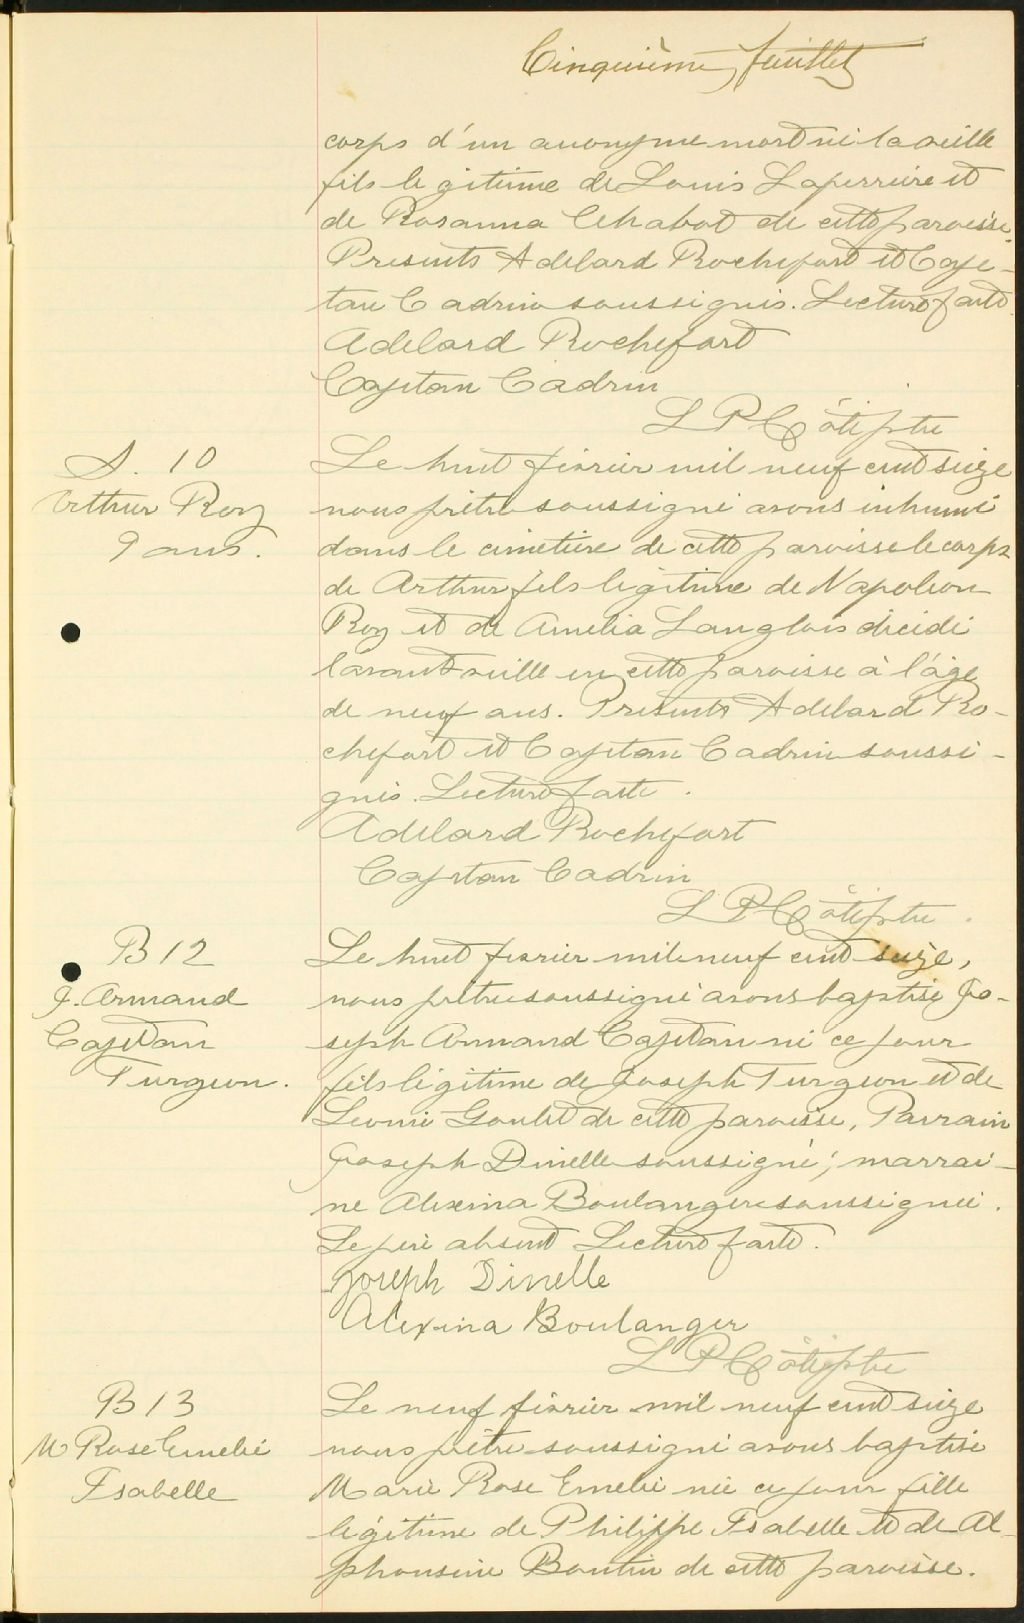 Cinquième feuillet
corps d'un anonyme mort né la veille
fils legitime de Louis Laperrière et
de Rosanna Chabot de cette paroisse.
Présents Adelard Rochefort et Caje-
tan Cadrin soussignés. Lecture faite.
Adelard Rochefort
Cajetan Cadrin
L P Côté, ptre
S. 10
Arthur Roy
9 ans.
Le huit février mil neuf cent seize
nous prêtre soussigné avons inhumé
dans le cimetière de cette paroisse le corps
de Arthur fils légitime de Napoléon
Roy et de Amelia Langlois décédé
l'avant veille en cette paroisse à l'âge
de neuf ans. Présents Adelard Ro-
chefort et Cajetan Cadrin soussi-
gnés. Lecture faite.
Adelard Rochefort
Cajetan Cadrin
L P Côté, ptre.
B 12
J. Armand
Cajetan
Turgeon.
Le huit février mil neuf cent seize,
nous prêtre soussigné avons baptisé Jo-
seph Armand Cajetan né ce jour
fils légitime de Joseph Turgeon et de
Léonie Goulet de cette paroisse, Parrain
Joseph Dinelle soussigné; marrai-
ne Alexina Boulanger soussignée.
Le père absent Lecture faite.
Joseph Dinelle
Alexina Boulanger
L P Côté, ptre
B 13
M Rose Emelie
Isabelle
Le neuf février mil neuf cent seize
nous prêtre soussigné avons baptisé
Marie Rose Emelie née ce jour fille
légitime de Philippe Isabelle et de Al-
phonsine Boutin de cette paroisse.